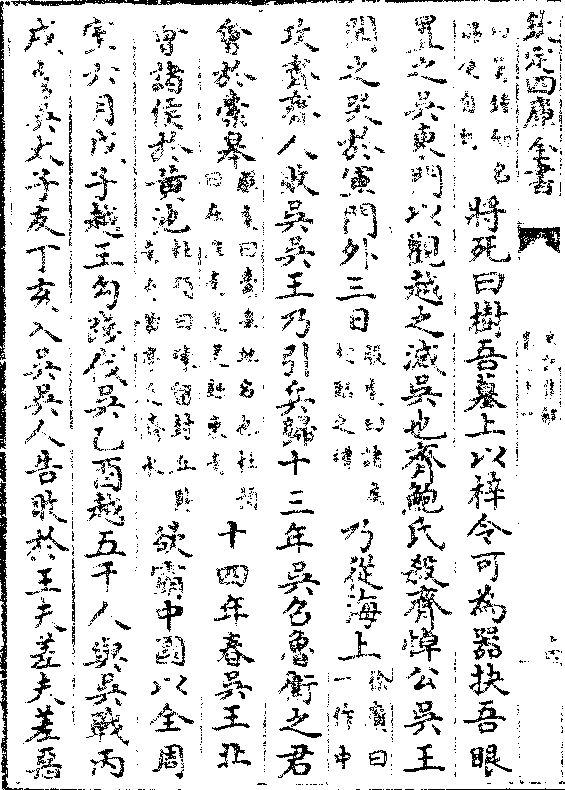 欽定四庫全書
史記集解
曰屬鏤劔名
賜使自刎
將死曰樹吾墓上以梓令可為器抉吾眼
置之吳東門以觀越之滅吳也齊鮑氏殺齊悼公吳王
聞之哭於軍門外三日
服虔曰諸侯
相臨之禮
乃從海上
徐廣曰
一作中
攻齊齊人敗吳吳王乃引兵歸十三年吳召魯衛之君
會於橐皋
服虔曰橐皋地名也杜預
曰在淮南逡遒縣東南
十四年春吳王北
會諸侯於黃池
杜預曰陳留封丘縣
南有黃亭近濟水
欲霸中國以全周
室六月戊子越王勾踐伐吳乙酉越五千人與吳戰丙
戌虜吳太子友丁亥入吳吳人告敗於王夫差夫差惡